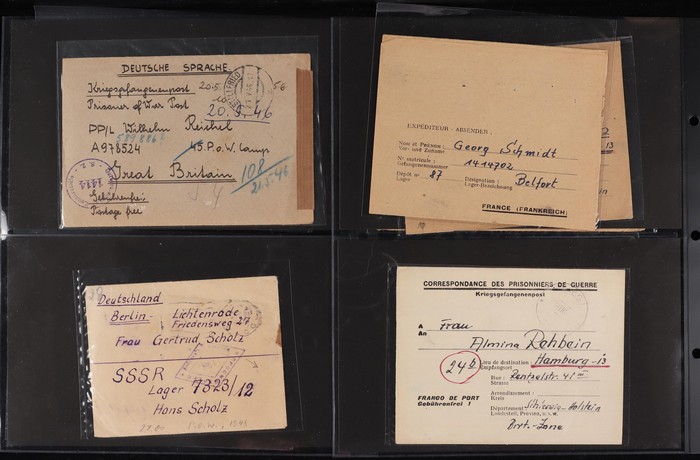 DEUTSCHE SPRACHE
Kriegsgefangenenpost 20.5.
Prisoner of War Post 20.5.46
PP/L Wilhelm Reichel
A978524 45 P.o.W. Camp
Great Britain 108
21.5.46
1414
Gebührenfrei
Postage free
EXPÉDITEUR - ABSENDER:
Nom et Prénom: Georg Schmidt
Vor- und Zuname
Nr matricule: 1414702
Gefangenennummer
Dépôt nr 87 Désignation: Belfort
Lager Lager-Bezeichnung
FRANCE (FRANKREICH)
Deutschland
Berlin- Lichtenrade
Friedensweg 27
Frau Gertrud Scholz
SSSR
Lager 7323/12
Hans Scholz
CORRESPONDANCE DES PRISONNIERS DE GUERRE
Kriegsgefangenenpost
A Frau
An
Almina Rehbein
24b Lieu de destination: Hamburg-13
Empfangsort
Rue: Rentzelstr. 41 III
Strasse
FRANCO DE PORT Arrondissement:
Gebührenfrei! Kreis
Département
Landesteil, Provinz, u.s.w.
Brit.-Zone